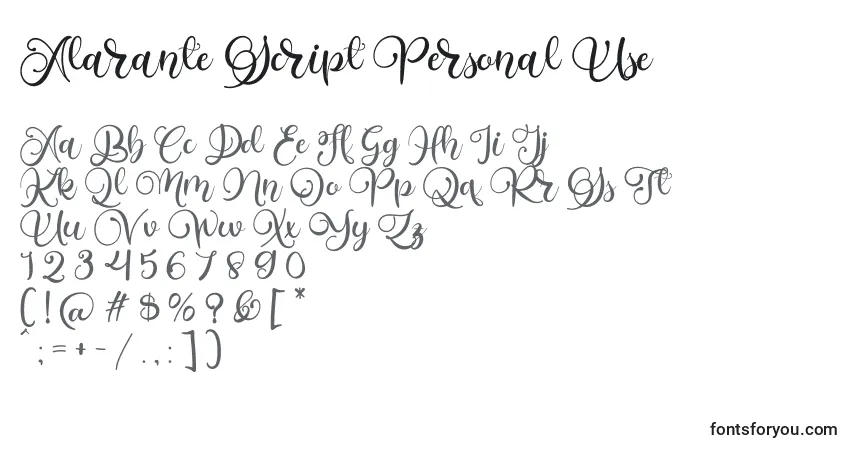 Alarante Script Personal Use
Aa Bb Cc Dd Ee Ff Gg Hh Ii Jj
Kk Ll Mm Nn Oo Pp Qq Rr Ss Tt
Uu Vv Ww Xx Yy Zz
1 2 3 4 5 6 7 8 9 0
( ! @ # $ % ? & [ *
^ ; = + - / . , : ] )
fontsforyou.com